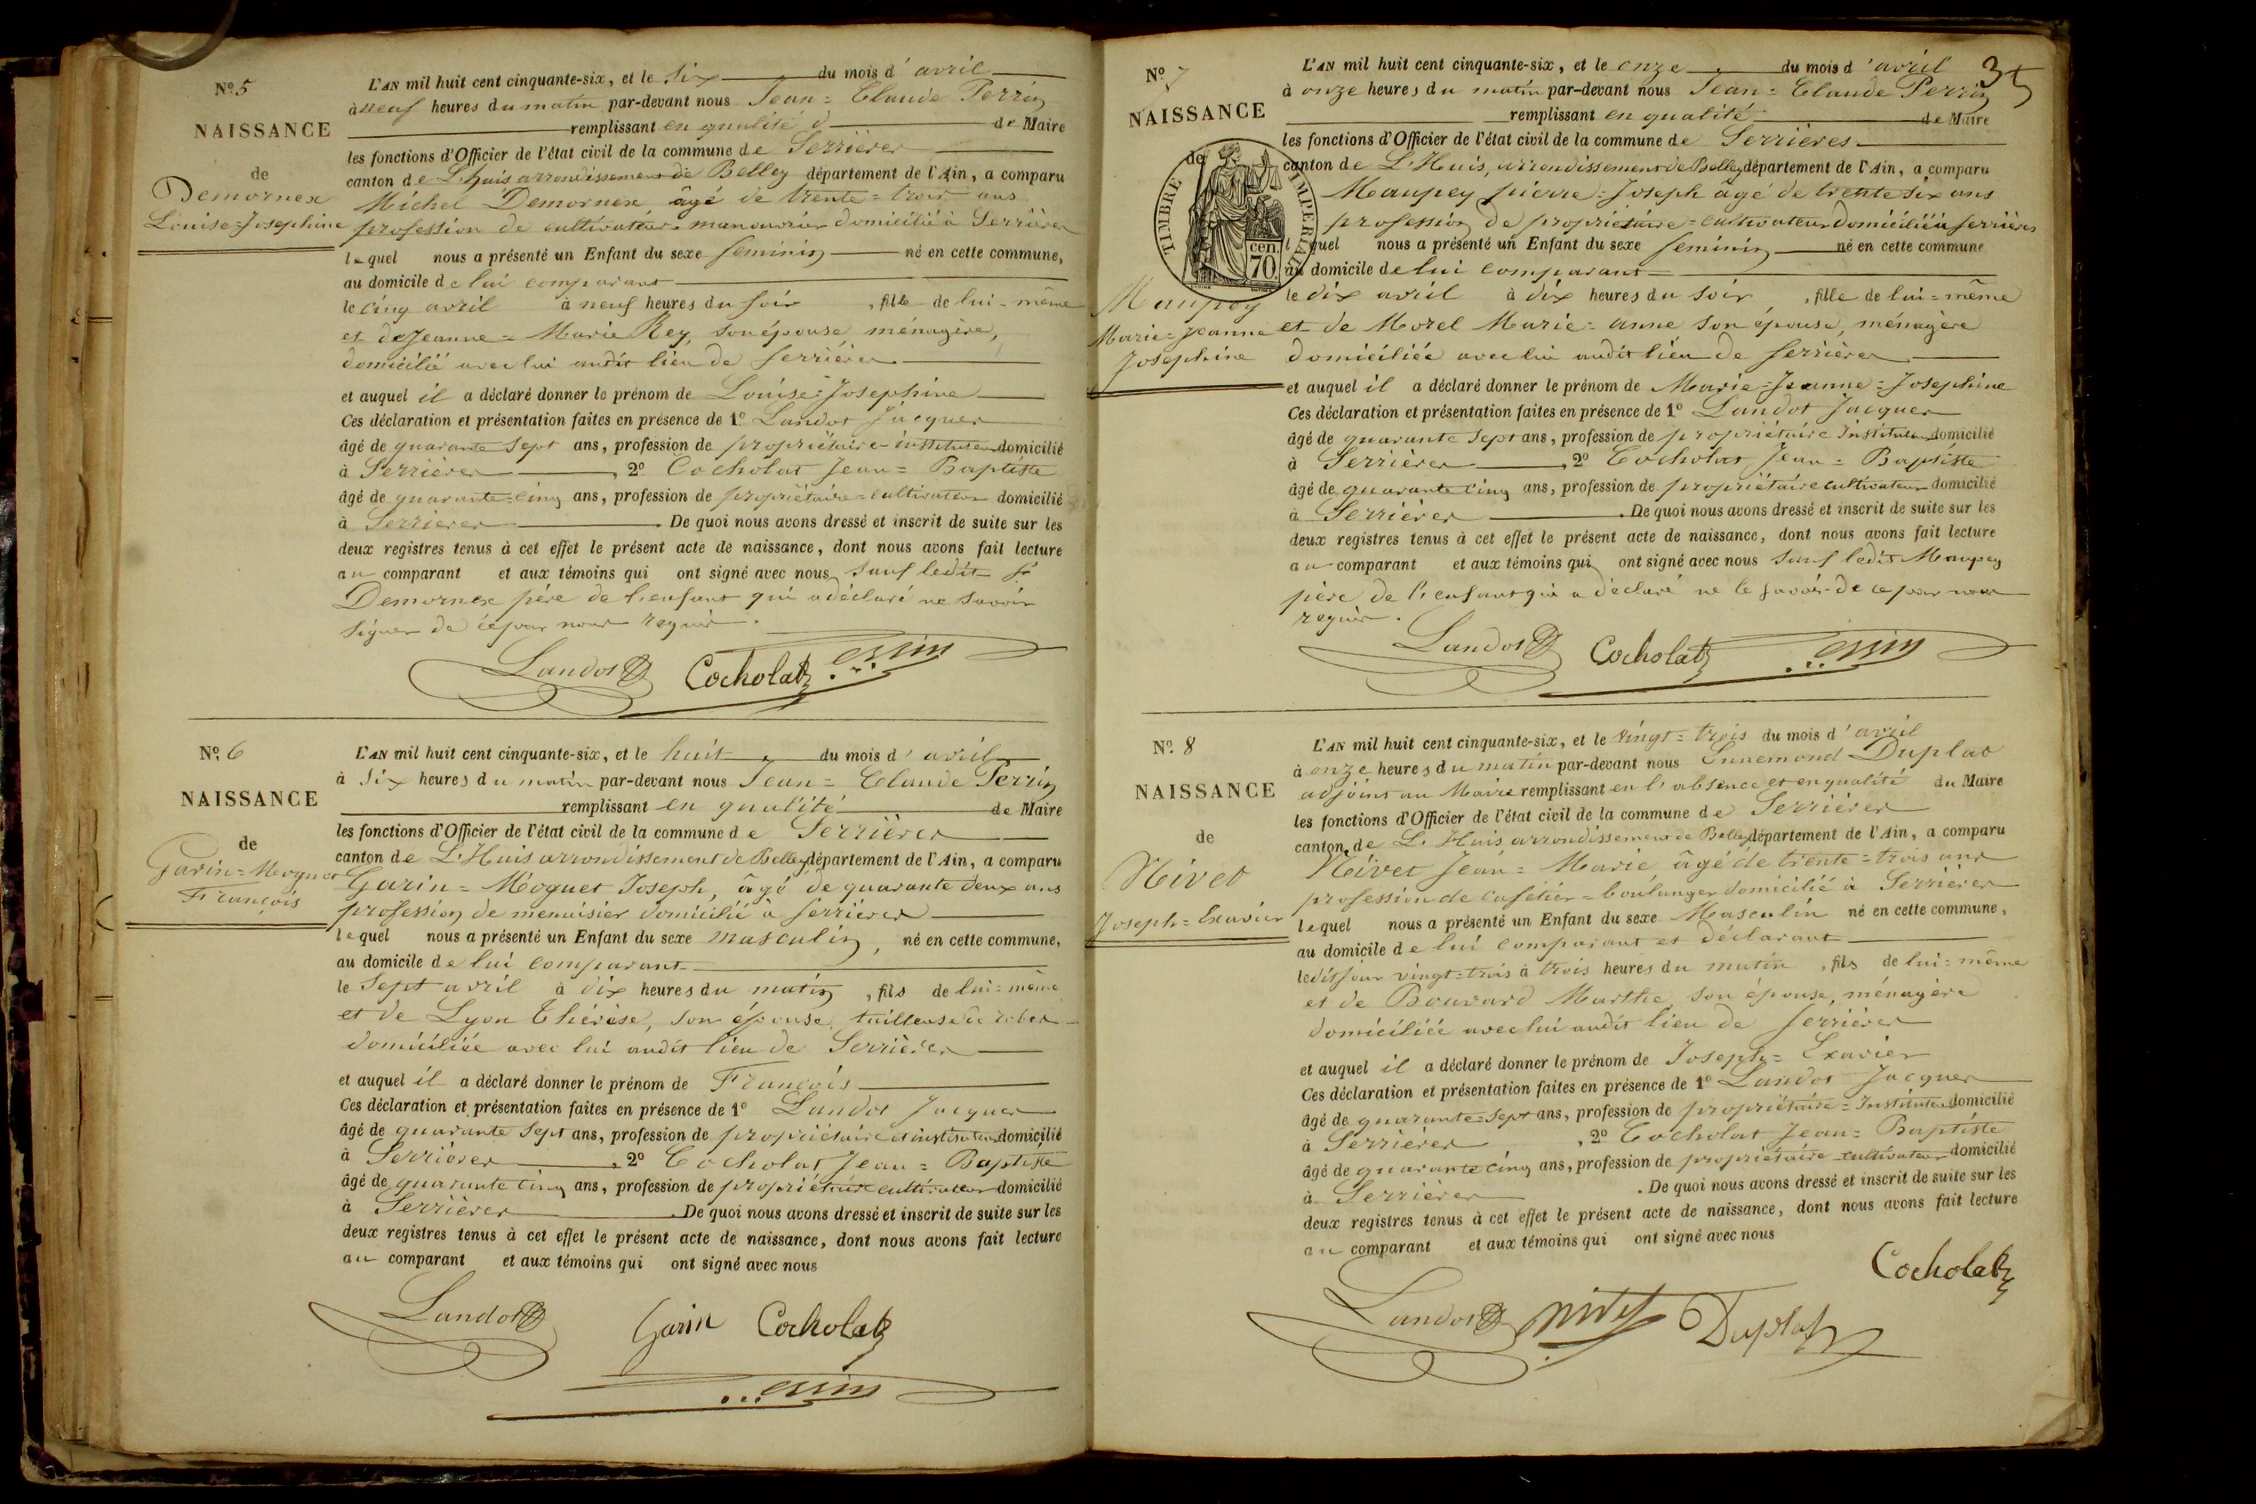 Nº 5
NAISSANCE
de
Demornex
Louise=Josephine
L'AN mil huit cent cinquante-six, et le six du mois d'avril
à neuf heures du matin par-devant nous Jean=Claude Perrin
remplissant en qualité d de Maire
les fonctions d'Officier de l'état civil de la commune de Serrières
canton de L'huis arrondissement de Belley département de l'Ain, a comparu
Michel Demornex âgé de trente=trois ans
profession de cultivateur=manouvrier domicilié à Serrières
lequel nous a présenté un Enfant du sexe feminin né en cette commune,
au domicile de lui comparant
le cinq avril à neuf heures du soir, fille de lui=même
et de Jeanne=Marie Rey, son épouse ménagère,
domicilié avec lui audit lieu de Serrières
et auquel il a déclaré donner le prénom de Louise=Josephine
Ces déclaration et présentation faites en présence de 1º Landot Jacques
âgé de quarante sept ans, profession de propriétaire-instituteur domicilié
à Serrières, 2º Cocholat Jean=Baptiste
âgé de quarante=cinq ans, profession de propriétaire=cultivateur domicilié
à Serrieres. De quoi nous avons dressé et inscrit de suite sur les
deux registres tenus à cet effet le présent acte de naissance, dont nous avons fait lecture
au comparant et aux témoins qui ont signé avec nous, sauf ledit
Demornex père de l'enfant qui a déclaré ne savoir
signer de ce par nous requis.
Landot Cocholat Perrin
Nº 6
NAISSANCE
de
Garin=Moguet
François
L'AN mil huit cent cinquante-six, et le huit du mois d'avril
à six heures du matin par-devant nous Jean=Claude Perrin
remplissant en qualité de Maire
les fonctions d'Officier de l'état civil de la commune de Serrières
canton de L'Huis arrondissement de Belley département de l'Ain, a comparu
Garin=Moguet Joseph, âgé de quarante deux ans
profession de menuisier domicilié à Serrières
lequel nous a présenté un Enfant du sexe masculin, né en cette commune,
au domicile de lui comparant
le sept avril à dix heures du matin, fils de lui=même
et de Lyon Thérèse, son épouse, tailleuse de robes
domiciliée avec lui audit lieu de Serrières
et auquel il a déclaré donner le prénom de François
Ces déclaration et présentation faites en présence de 1º Landot Jacques
âgé de quarante sept ans, profession de propriétaire et instituteur domicilié
à Serrières, 2º Cocholat Jean=Baptiste
âgé de quarante cinq ans, profession de propriétaire cultivateur domicilié
à Serrières. De quoi nous avons dressé et inscrit de suite sur les
deux registres tenus à cet effet le présent acte de naissance, dont nous avons fait lecture
au comparant et aux témoins qui ont signé avec nous
Landot Garin Cocholat
Perrin
35
Nº 7
NAISSANCE
de
TIMBRE IMPERIAL
cen.
70
Maupey
Marie=Jeanne
Josephine
L'AN mil huit cent cinquante-six, et le onze du mois d'avril
à onze heures du matin par-devant nous Jean=Claude Perrin
remplissant en qualité de Maire
les fonctions d'Officier de l'état civil de la commune de Serrieres
canton de L'Huis, arrondissement de Belley département de l'Ain, a comparu
Maupey pierre=Joseph âgé de trente six ans
profession de propriétaire=cultivateur domicilié à Serrières
lequel nous a présenté un Enfant du sexe feminin né en cette commune
au domicile de lui comparant
le dix avril à dix heures du soir, fille de lui=même
et de Morel Marie=anne son épouse, ménagère
domiciliée avec lui audit lieu de Serrières
et auquel il a déclaré donner le prénom de Marie=Jeanne=Josephine
Ces déclaration et présentation faites en présence de 1º Landot Jacques
âgé de quarante sept ans, profession de propriétaire Instituteur domicilié
à Serrières, 2º Cocholat Jean=Baptiste
âgé de quarante cinq ans, profession de propriétaire cultivateur domicilié
à Serrières. De quoi nous avons dressé et inscrit de suite sur les
deux registres tenus à cet effet le présent acte de naissance, dont nous avons fait lecture
au comparant et aux témoins qui ont signé avec nous sauf ledit Maupey
père de l'enfant qui a déclaré ne le savoir de ce par nous
requis.
Landot Cocholat Perrin
Nº 8
NAISSANCE
de
Nivet
Joseph=Exavier
L'AN mil huit cent cinquante-six, et le vingt=trois du mois d'avril
à onze heures du matin par-devant nous Ennemond Duplat
adjoint au Maire remplissant en l'absence et en qualité du Maire
les fonctions d'Officier de l'état civil de la commune de Serrières
canton de L'Huis arrondissement de Belley département de l'Ain, a comparu
Nivet Jean=Marie âgé de trente=trois ans
profession de cafetier=boulanger domicilié à Serrières
lequel nous a présenté un Enfant du sexe Masculin né en cette commune,
au domicile de lui comparant et déclarant
ledit jour vingt=trois à trois heures du matin, fils de lui=même
et de Bouvard Marthe, son épouse, ménagère
domiciliée avec lui audit lieu de Serrières
et auquel il a déclaré donner le prénom de Joseph=Exavier
Ces déclaration et présentation faites en présence de 1º Landot Jacques
âgé de quarante=sept ans, profession de propriétaire=Instituteur domicilié
à Serrières, 2º Cocholat Jean=Baptiste
âgé de quarante cinq ans, profession de propriétaire cultivateur domicilié
à Serrières. De quoi nous avons dressé et inscrit de suite sur les
deux registres tenus à cet effet le présent acte de naissance, dont nous avons fait lecture
au comparant et aux témoins qui ont signé avec nous
Cocholat
Landot Nivet Duplat